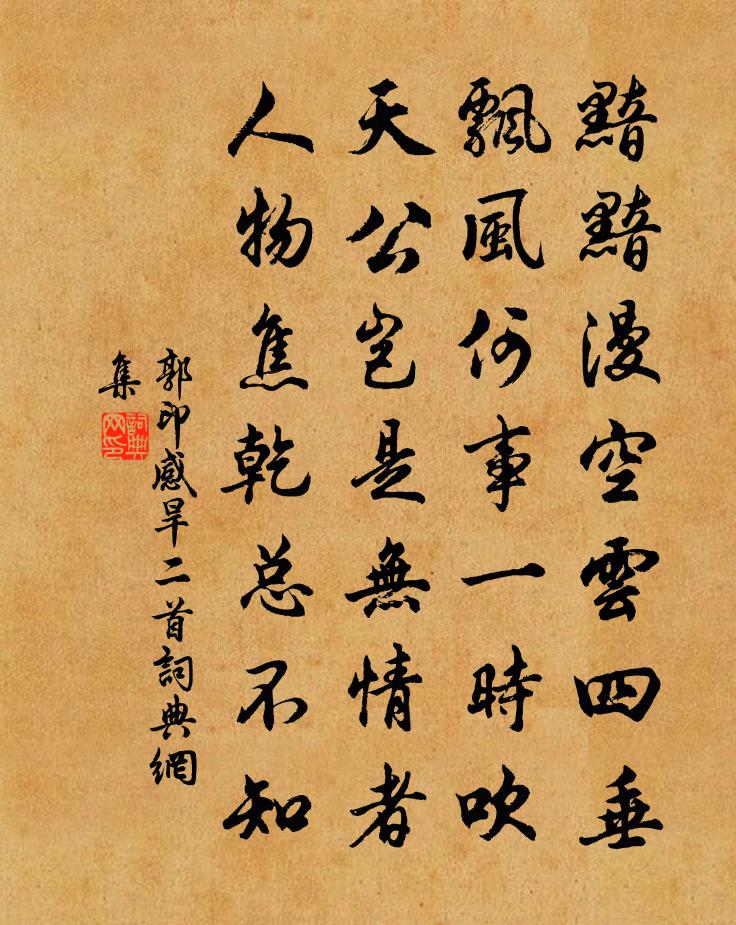 黯黯漫空雲四垂
飄風何事一時吹
天公豈是無情者
人物焦乾总不知
郭印感旱二首詞典網
集
詞典
网印